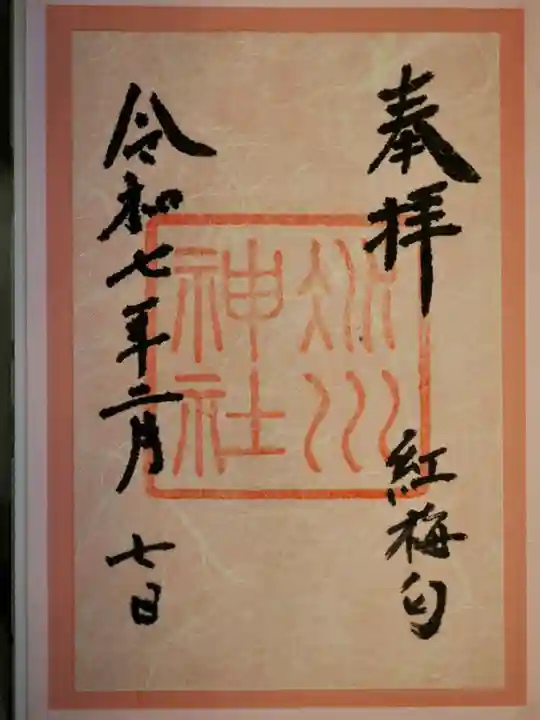 奉拝
紅梅匂
氷川
神社
令和七年二月
七日